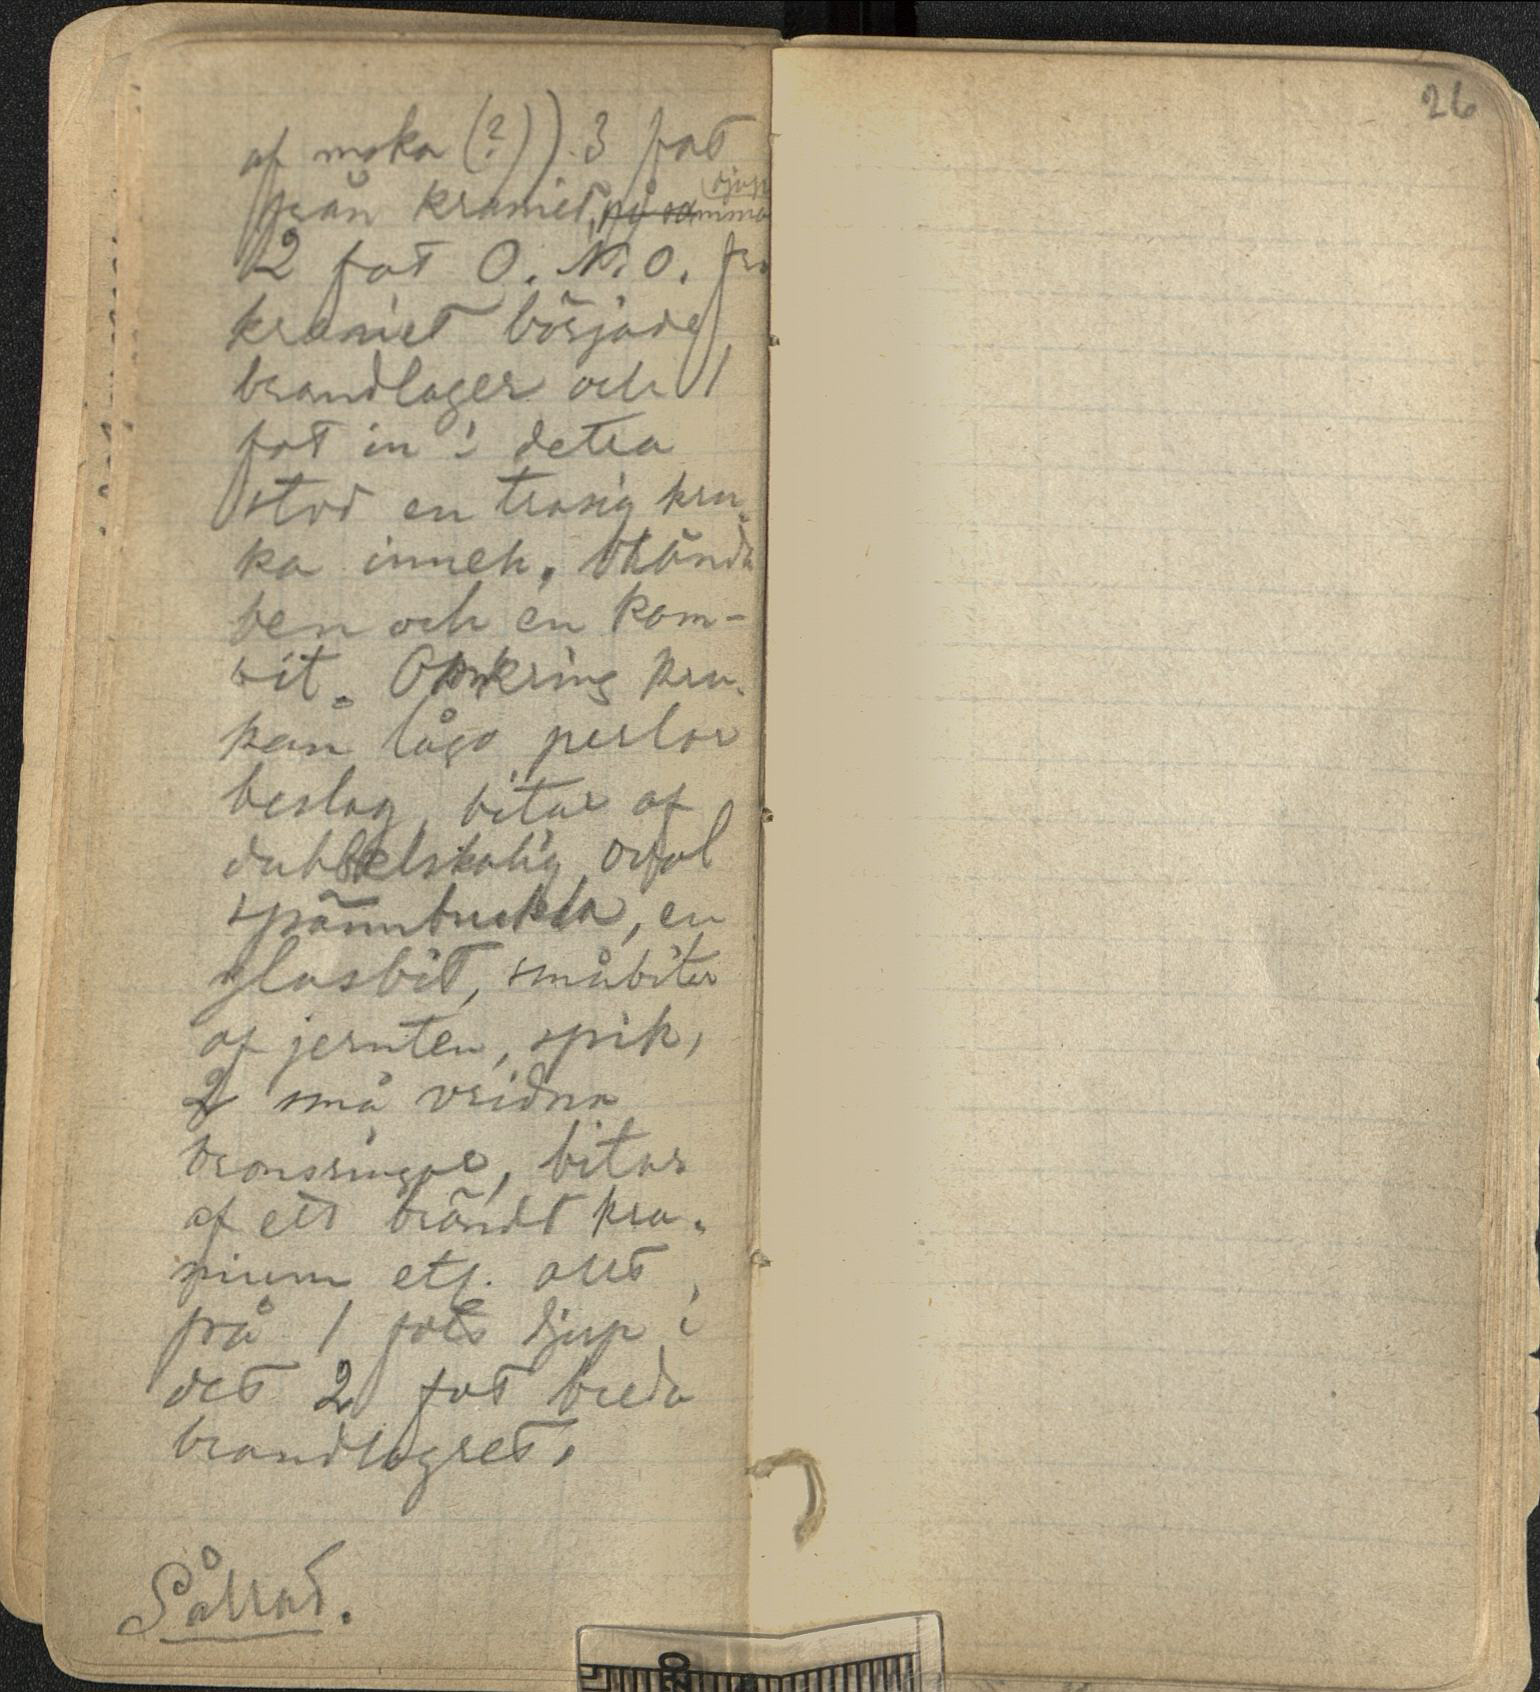 af moka (?)) 3 fot
från kraniet, på samma djup
2 fot O. N. O. frå
kraniet började
brandlager och 1
fot in i detta
stod en trasig kru-
ka inneh. brända
ben och en kam-
bit. Omkring kru-
kan lågo perlor
beslag, bitar af
dubbelskalig oval
spännbuckla, en
glasbit, småbitar
af jernten, spik,
2 små vridna
bronsringar, bitar
af ett brändt kra-
nium etc. allt
på 1 fots djup i
det 2 fot breda
brandlagret.
Sållad.
26